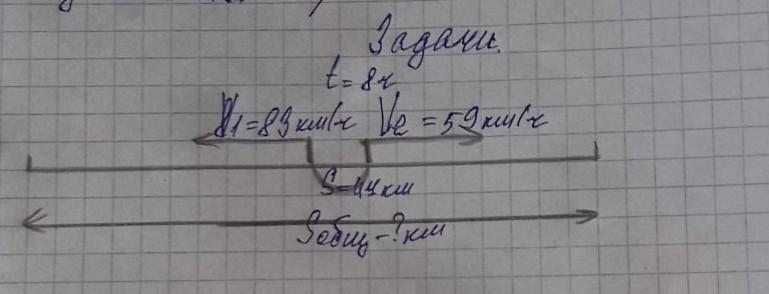 Задачи.
t = 8ч
V1 = 83 км/ч V2 = 59 км/ч
S = 44 км
Sобщ - ? км